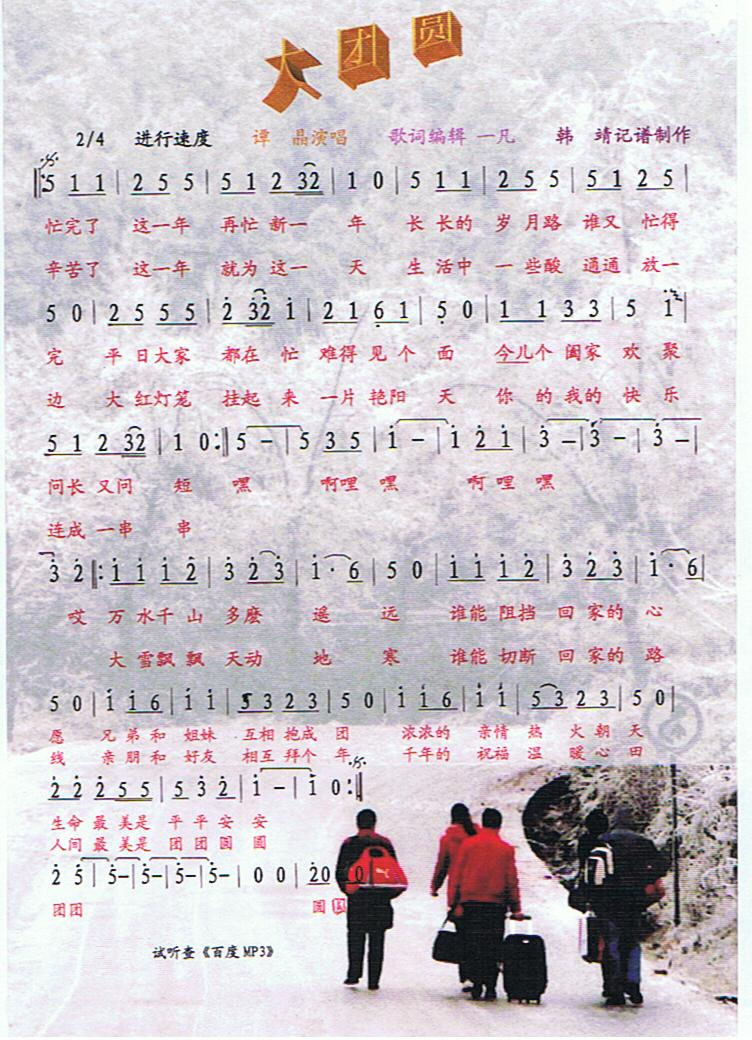 大团圆
2/4 进行速度 谭 晶演唱 歌词编辑 一凡 韩 靖记谱制作
5 1 1 | 2 5 5 | 5 1 2 32 | 1 0 | 5 1 1 | 2 5 5 | 5 1 2 5 |
忙完了 这一年 再忙 新一 年 长 长的 岁 月路 谁又 忙得
辛苦了 这一年 就为 这一 天 生 活中 一些酸 通通 放一
5 0 | 2 5 5 5 | 2 32 1 | 2 1 6 1 | 5 0 | 1 1 3 3 | 5 1 |
完 平 日大家 都在 忙 难得 见 个 面 今儿个 阖家 欢 聚
边 大 红灯笼 挂起 来 一片 艳阳 天 你 的 我的 快 乐
5 1 2 32 | 1 0 :|| 5 – | 5 3 5 | 1 – | 1 2 1 | 3 – | 3 – | 3 – |
问长 又问 短 嘿 啊哩 嘿 啊 哩 嘿
连成 一串 串
3 2 ||: 1 1 1 2 | 3 2 3 | 1 · 6 | 5 0 | 1 1 1 2 | 3 2 3 | 1 · 6 |
哎 万 水千 山 多麽 遥 远 谁能 阻挡 回 家的 心
大 雪飘 飘 天动 地 寒 谁能 切断 回 家的 路
5 0 | 1 1 6 | 1 1 | 5 3 2 3 | 5 0 | 1 1 6 | 1 1 | 5 3 2 3 | 5 0 |
愿 兄 弟 和 姐妹 互相 抱成 团 浓浓的 亲情 热 火 朝 天
线 亲 朋 和 好友 相互 拜个 年 千年的 祝福 温 暖 心 田
2 2 2 5 5 | 5 3 2 | 1 – | 1 0 :||
生命 最 美是 平 平 安 安
人间 最 美是 团 团 圆 圆
2 5 | 5– | 5– | 5– | 5– | 0 0 | 20 0
团团 圆 圆
试听查《百度 MP3》